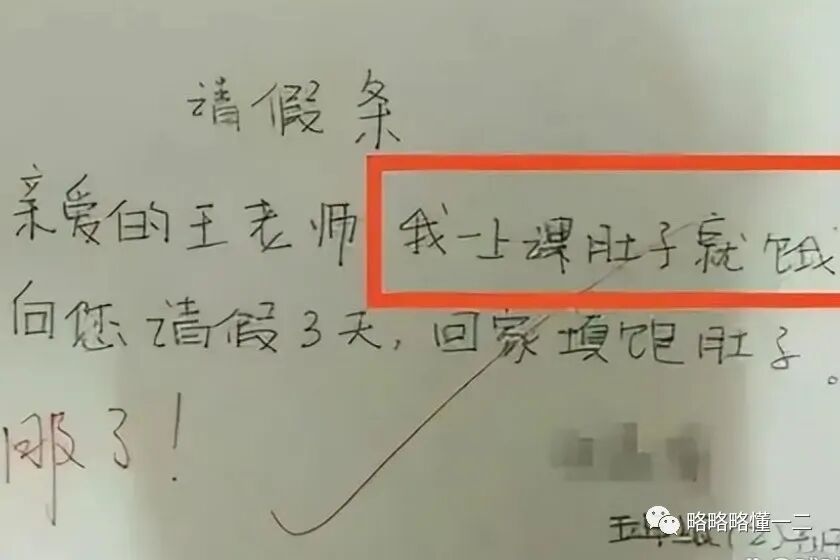 请假条
亲爱的王老师 我一上课肚子就饿
向您请假3天,回家填饱肚子。
服了!
略略略懂一二
五年级(2)班